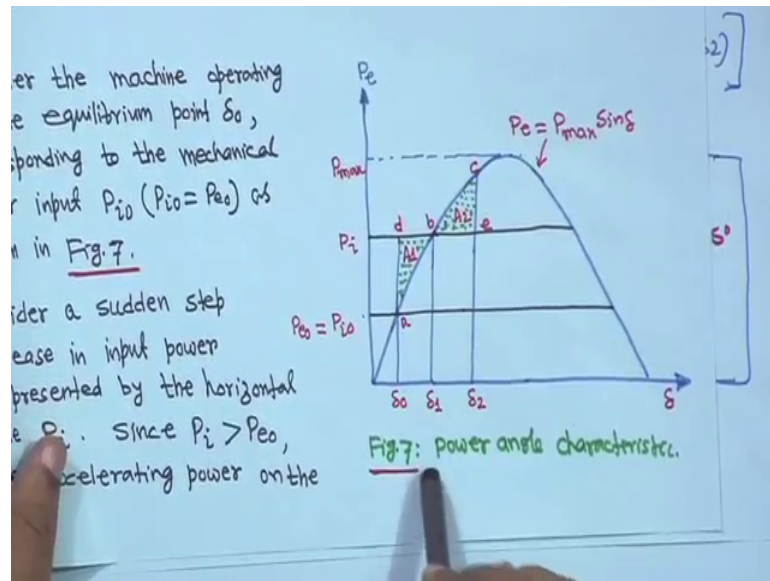 er the machine operating
e equilibrium point δ0,
sponding to the mechanical
r input Pio (Pio = Peo) as
n in Fig.7.
ider a sudden step
ease in input power
presented by the horizontal
e Pi. Since Pi > Peo,
celerating power on the
Pe
Pe = Pmax Sinδ
Pmax
c
d
b
A2
e
A1
Pi
a
Peo = Pio
δ0
δ1
δ2
δ
Fig.7: power angle characteristic.
52)]
50